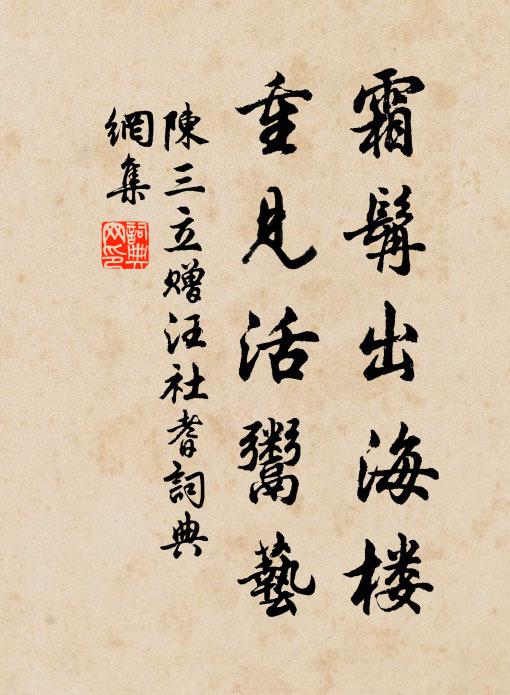 霜髯出海楼
重見活鬻藝
陳三立赠汪社耆詞典
網集
詞典网印